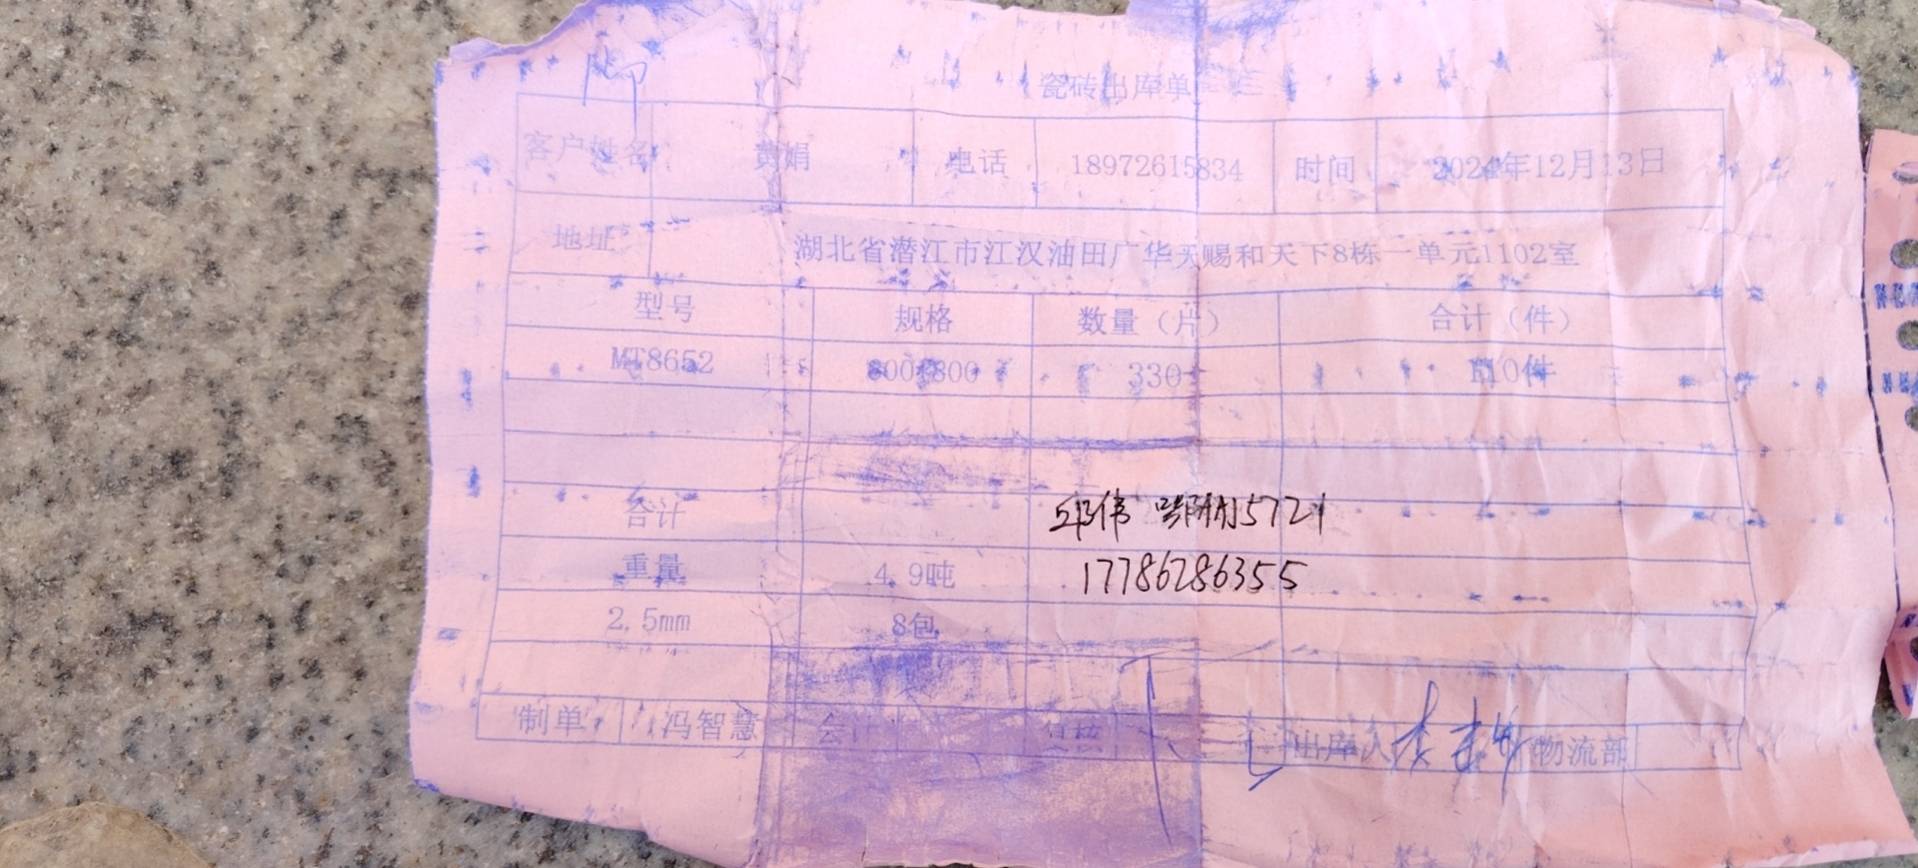 瓷砖出库单
客户姓名 黄娟 电话 18972615834 时间 2024年12月13日
地址 湖北省潜江市江汉油田广华天赐和天下8栋一单元1102室
型号 规格 数量（片） 合计（件）
MT8652 800*800 330 110件
合计 邱伟 5721
重量 4.9吨 17786286355
2.5mm 8包
制单 冯智慧 会计 出库人 物流部